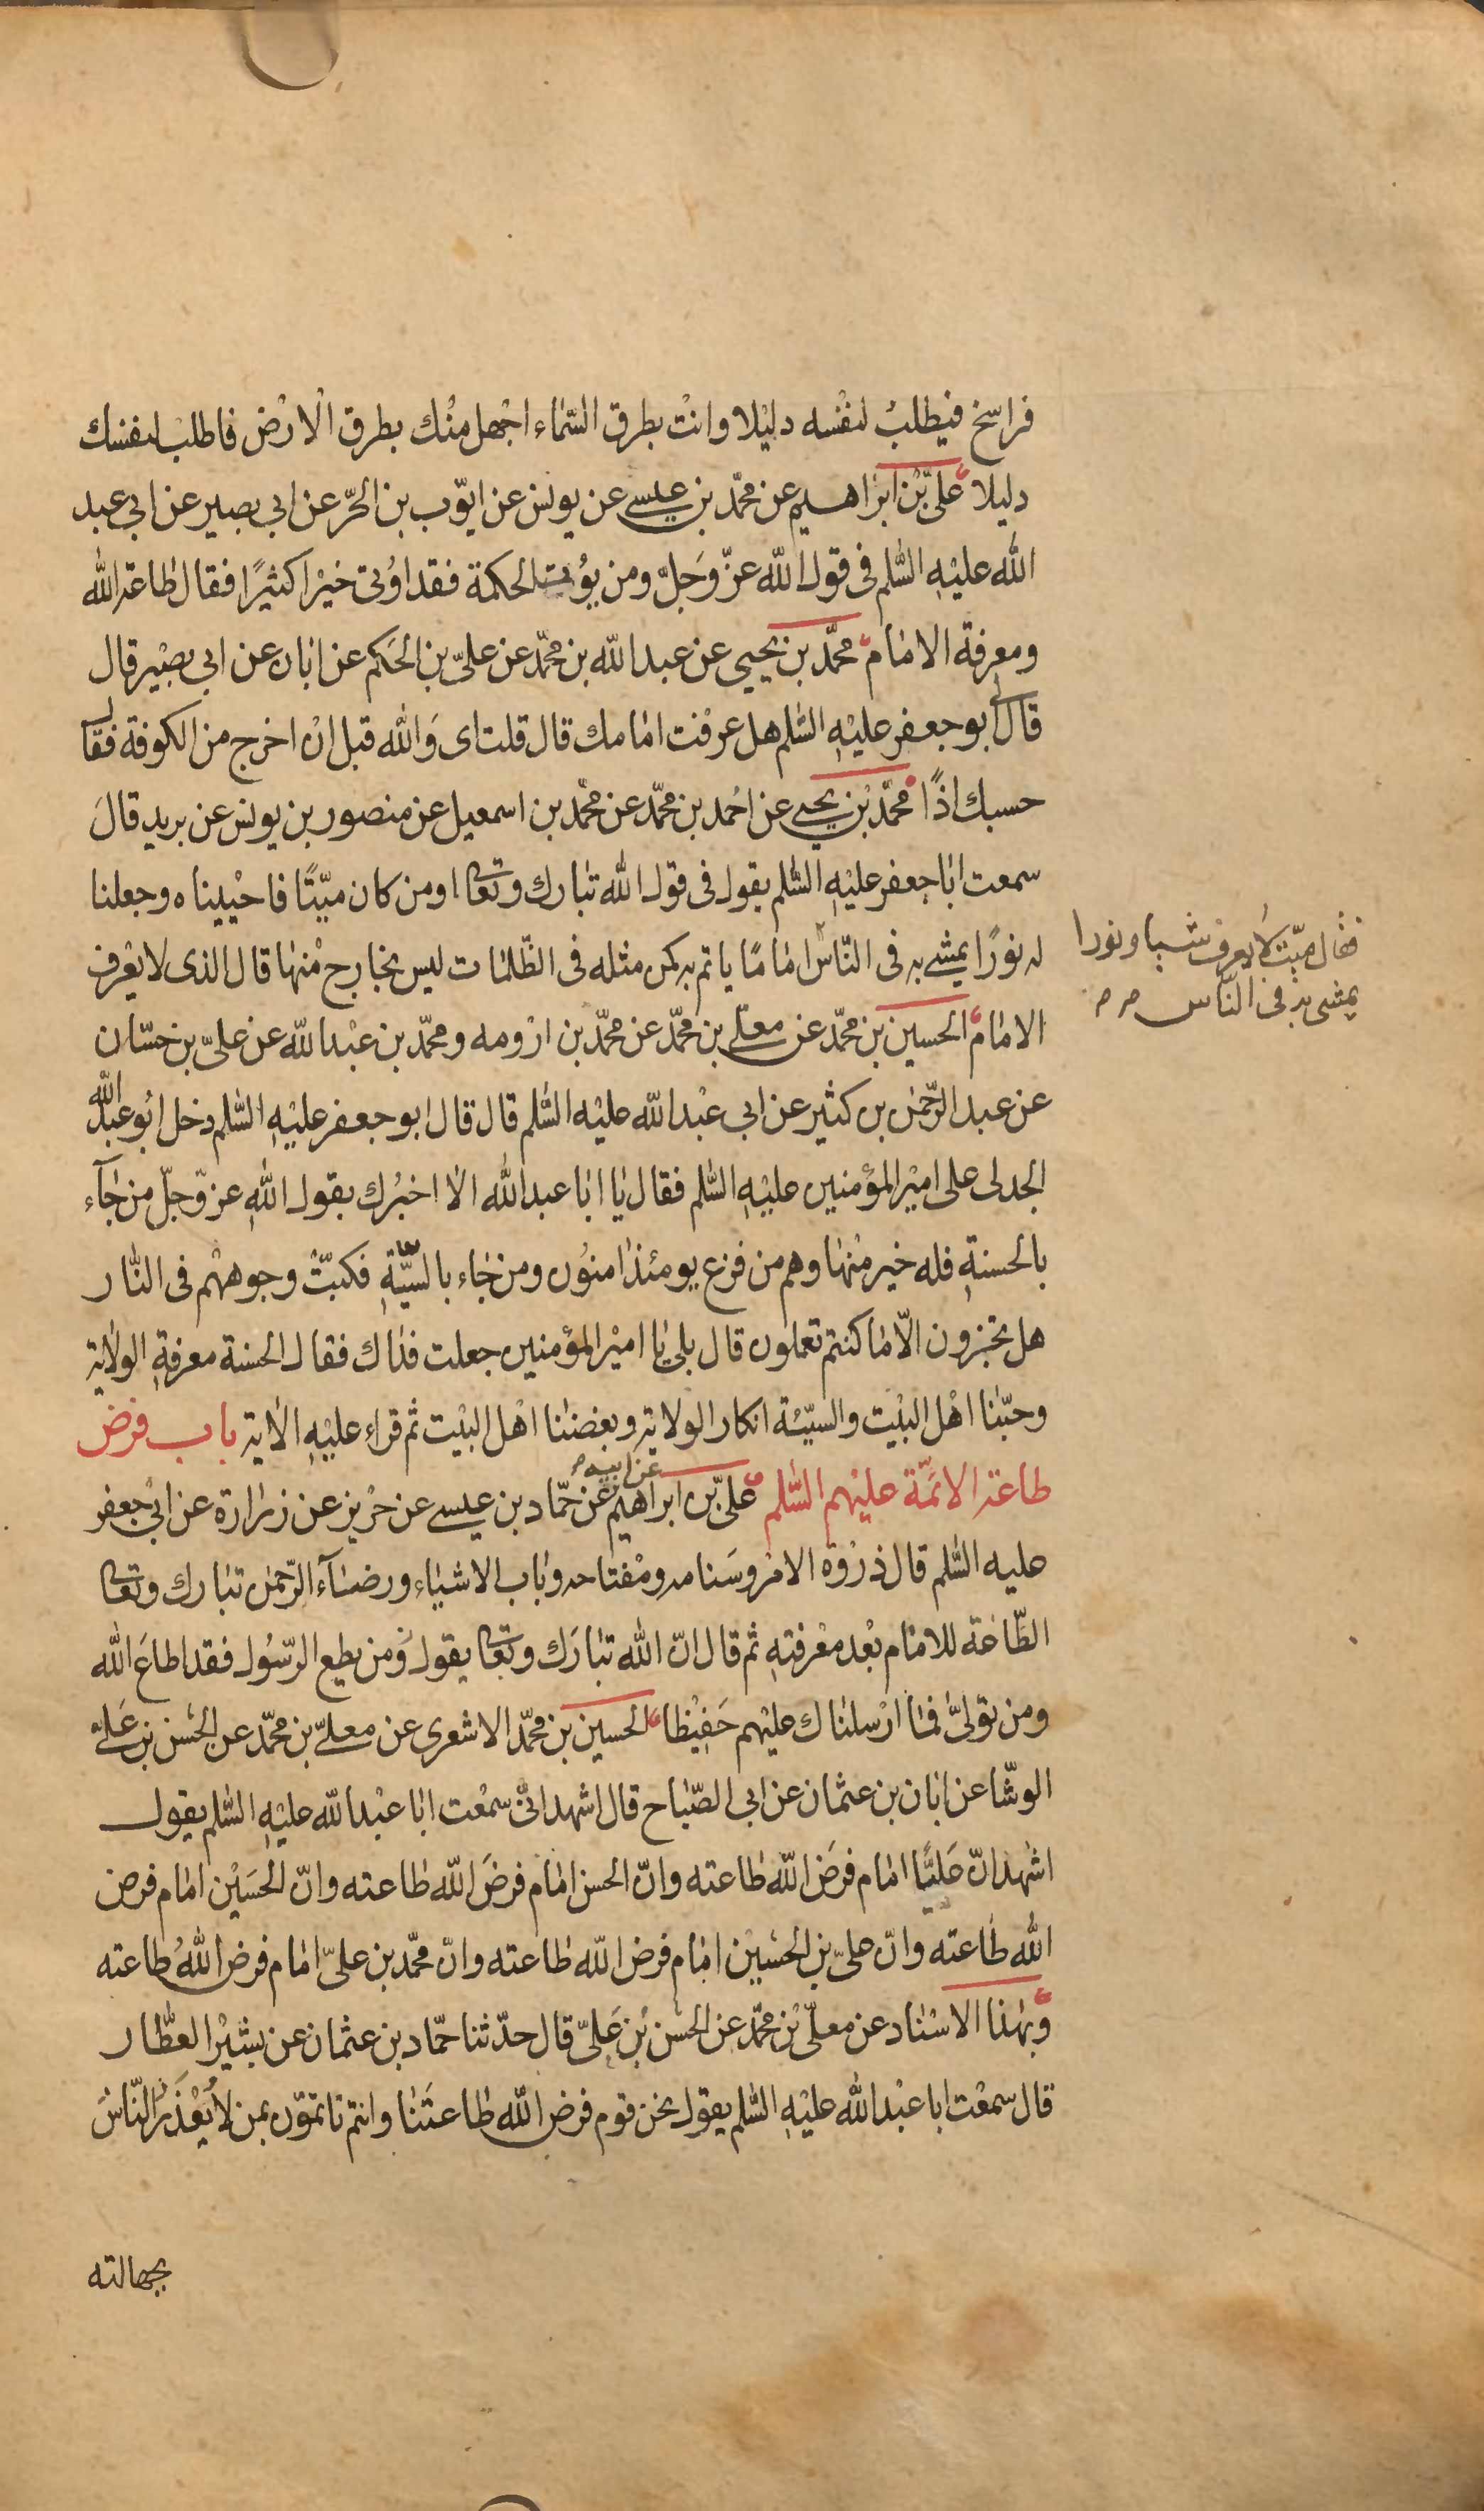 فراسخ فيطلبُ لنفْسه دليْلا وانتْ بطرق السّماء اجْهل منْك بطرق الْارْض فاطلبْ لنفسك
دليلا علىّ بْن ابرٰاهيم عن محمّد بن عيسى عن يونس عن ايّوب بن الحرّ عن ابى بصير عن ابى عبد
الله عليْهِ السّلم فى قول الله عزّ وَجلّ ومن يؤْت الحكمة فقد اوُتى خيْرا كثيْرًا فقال طاعة الله
ومعرفة الامٰام محمّد بن يحيى عن عبد الله بن محمّد عن علىّ بن الحَكم عن ابٰان عن ابى بصيْر قال
قال لى ابو جعفر عليْهِ السّلم هل عرفْت امٰامك قال قلت اى وَالله قبل انْ اخرج من الكوفة فقال
حسبك اذًا محمّد بْن يحيى عن احْمد بن محمّد عن محمّد بن اسمعيل عن منصور بن يونس عن بريد قالَ
سمعت ابٰا جعفر عليْهِ السّلم يقول فى قول الله تبٰارك وتعٰالى اومن كان ميّتًا فاحْييناه وجعلنا
له نورًا يمشى به فى النّاس امٰامًا ياتم به كمن مثله فى الظّلمٰات ليس بخارج منْهٰا قال الذى لا يعْرف
الامٰام الحسين بن محمّد عن معلّى بن محمّد عن محمّد بن ارْومه ومحمّد بن عبْد الله عن علىّ بن حسّان
عن عبد الرّحمٰن بن كثيْر عن ابى عبْد الله عليْه السّلم قال قال ابو جعفر عليْهِ السّلم دخل ابُو عبد الله
الجدلى على اميْر المؤمنين عليْهِ السّلم فقال يٰا ابٰا عبد الله الٰا اخبرُك بقول اللهِ عزّ وّجلّ من جٰآء
بالحسنةِ فله خير منْهٰا وهم من فزع يومئذ اٰمنوُن ومن جٰاء بالسيّئةِ فكبتّْ وجوههْم فى النّار
هل تجزون الّا مٰا كنتم تعملون قال بلى يٰا اميْر المؤمنين جعلت فدٰاك فقال الحسنة معرفةِ الولايٰة
وحبّنٰا اهْل البيْت والسيّئة انكار الولاية وبغضنٰا اهْل البيْت ثم قراء عليْهِ الٰاية باب فرض
طاعة الائمّة عليْهم السّلم علىّ بن ابراهيم عن ابيه عن حمّاد بن عيسى عن حرْيز عن زرٰارة عن ابىْ جعفر
عليه السّلم قال ذرْوة الامْر وسَنامه ومفْتاحه وبٰاب الاشيٰاء ورضٰآء الرّحمٰن تبٰارك وتعٰالى
الطّاعة للامٰام بعْد معْرفتهِ ثم قال انّ الله تبٰارَك وتعٰالى يقول وَمن يطع الرّسُول فقد اطاعَ الله
ومن تولىّٰ فمٰا ارْسلنٰاك عليْهم حَفيْظا الحسين بن محمّد الاشعرى عن معلىّ بن محمّد عن الحسَن بن عَلىّ
الوشّا عن ابٰان بن عثمٰان عن ابى الصّبٰاح قال اشهد انّى سمعْت ابٰا عبْد الله عليْهِ السّلم يقول
اشْهد انّ عَليًّا امٰام فرَض الله طٰاعته وانّ الحسن امٰام فرضَ الله طاعته وانّ الحسَيْن امٰام فرض
الله طاعته وانّ علىّ بن الحسيْن امٰام فرض الله طٰاعته وانّ محمّد بن علىّ امٰام فرض اللهُ طاعته
وَبهٰذا الاسْنٰاد عن معلّى بْن محمّد عن الحسَن بْن عَلىّ قال حدّثنا حمّاد بن عثمٰان عن بشيْر العطّار
قال سمعْت ابا عبْد الله عليْهِ السّلم يقول نحن قوم فرض الله طٰاعتَنٰا وانتم تاتمّون بمن لا يُعْذَرُ النّاسُ
بجهالته
فقال ميّت لا يعرف شيا ونورا
يمشى به فى النّاس